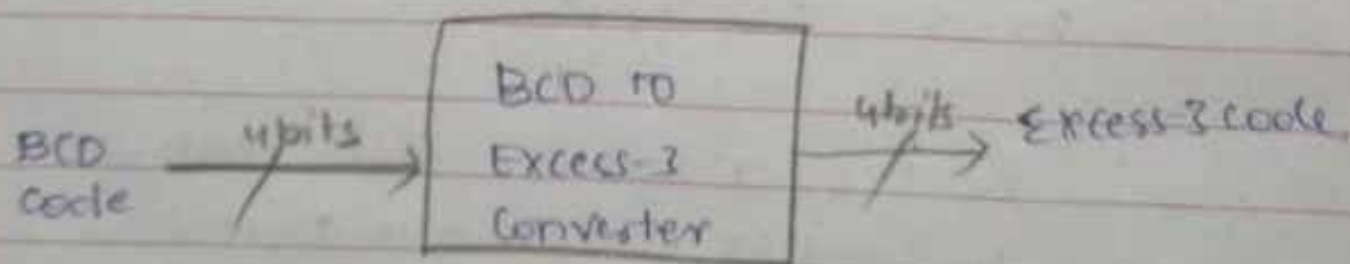 BCD
Code
4bits
BCD to
Excess-3
Converter
4bits
Excess-3 code